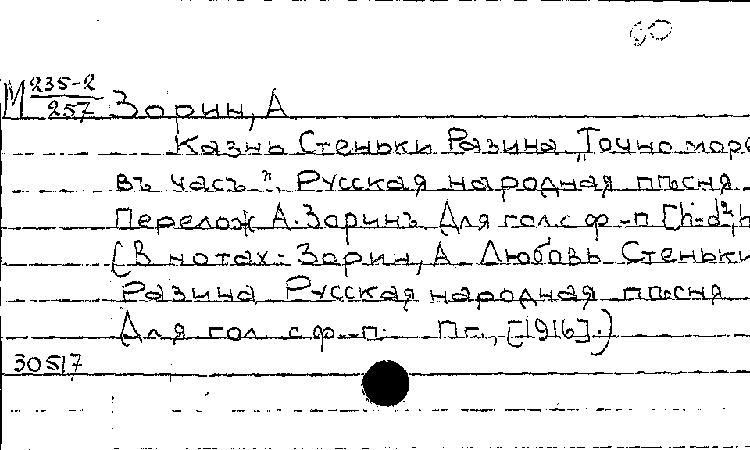 60
М 235-2
257
Зорин, А
Казнь Стеньки Разина „Точно море
въ часъ". Русская народная пѣсня
Перелож А. Заринъ Для гол. с ф-п [h-d², h
(В нотах: Зорин, А. Любовь Стеньки
Разина Русская народная пѣсня
Для гол с ф-п. Пг., [1916].)
30517